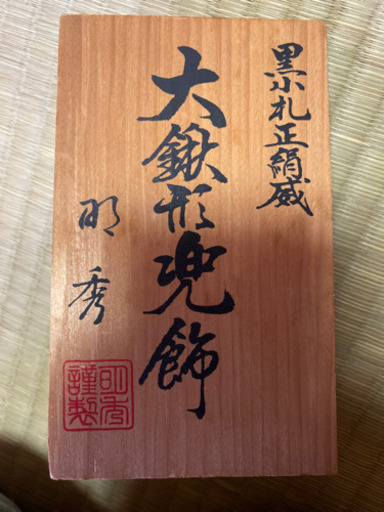 黒小札正絹威
大鍬形兜飾
明秀
明秀
謹製